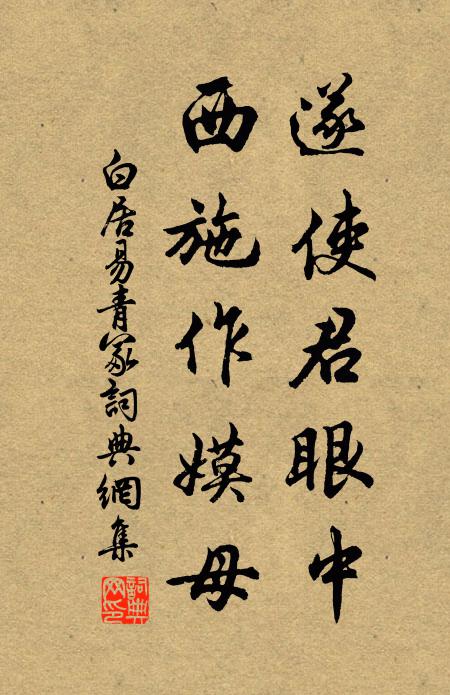 遂使君眼中
西施作嫫母
白居易青冢詞典網集
詞典网印